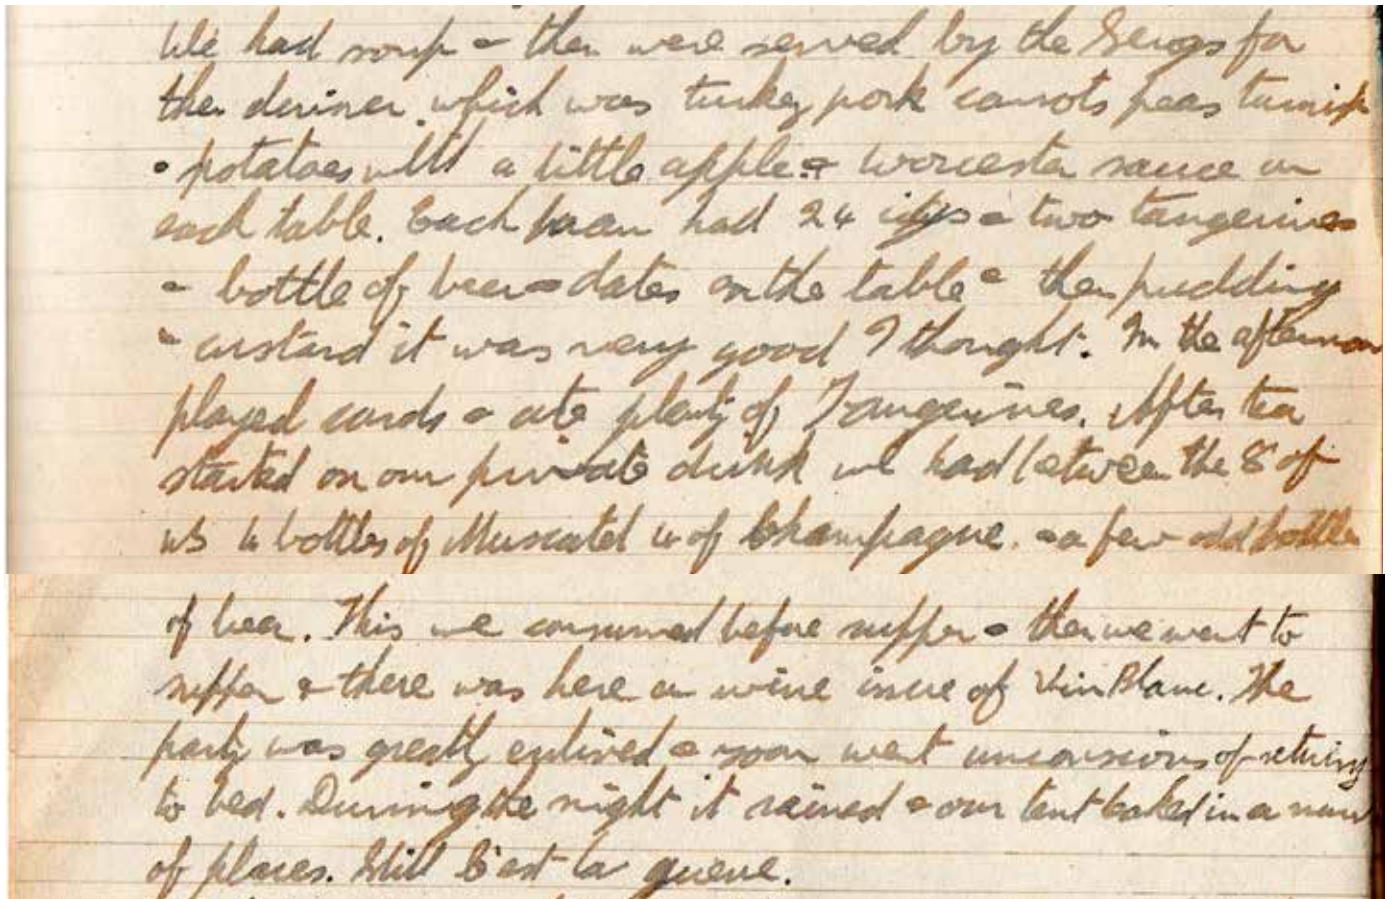 We had soup & then were served by the Sergs for
the dinner which was turkey pork carrots peas turnip
& potatoes with a little apple & worcester sauce on
each table. Each man had 24 cigs & two tangerines
& bottle of beer & dates on the table & then pudding
& custard it was very good I thought. In the afternoon
played cards & ate plenty of Tangerines. After tea
started on our private drink we had between the 8 of
us 4 bottles of Muscatel 4 of Champagne. & a few odd bottles
of beer. This we consumed before supper & then we went to
supper & there was here a wine issue of Vin Blanc. The
party was greatly enlived & soon went unconsious of
to bed. During the night it rained & our tent in a
of places. Still C'est la guerre.